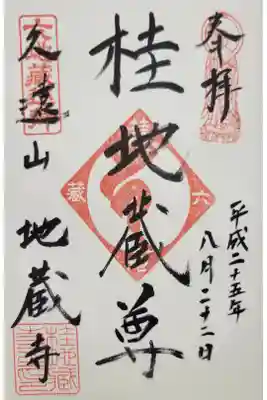 奉拝
平成二十五年
八月二十二日
桂地蔵尊
六
蔵
久遠山
地蔵寺